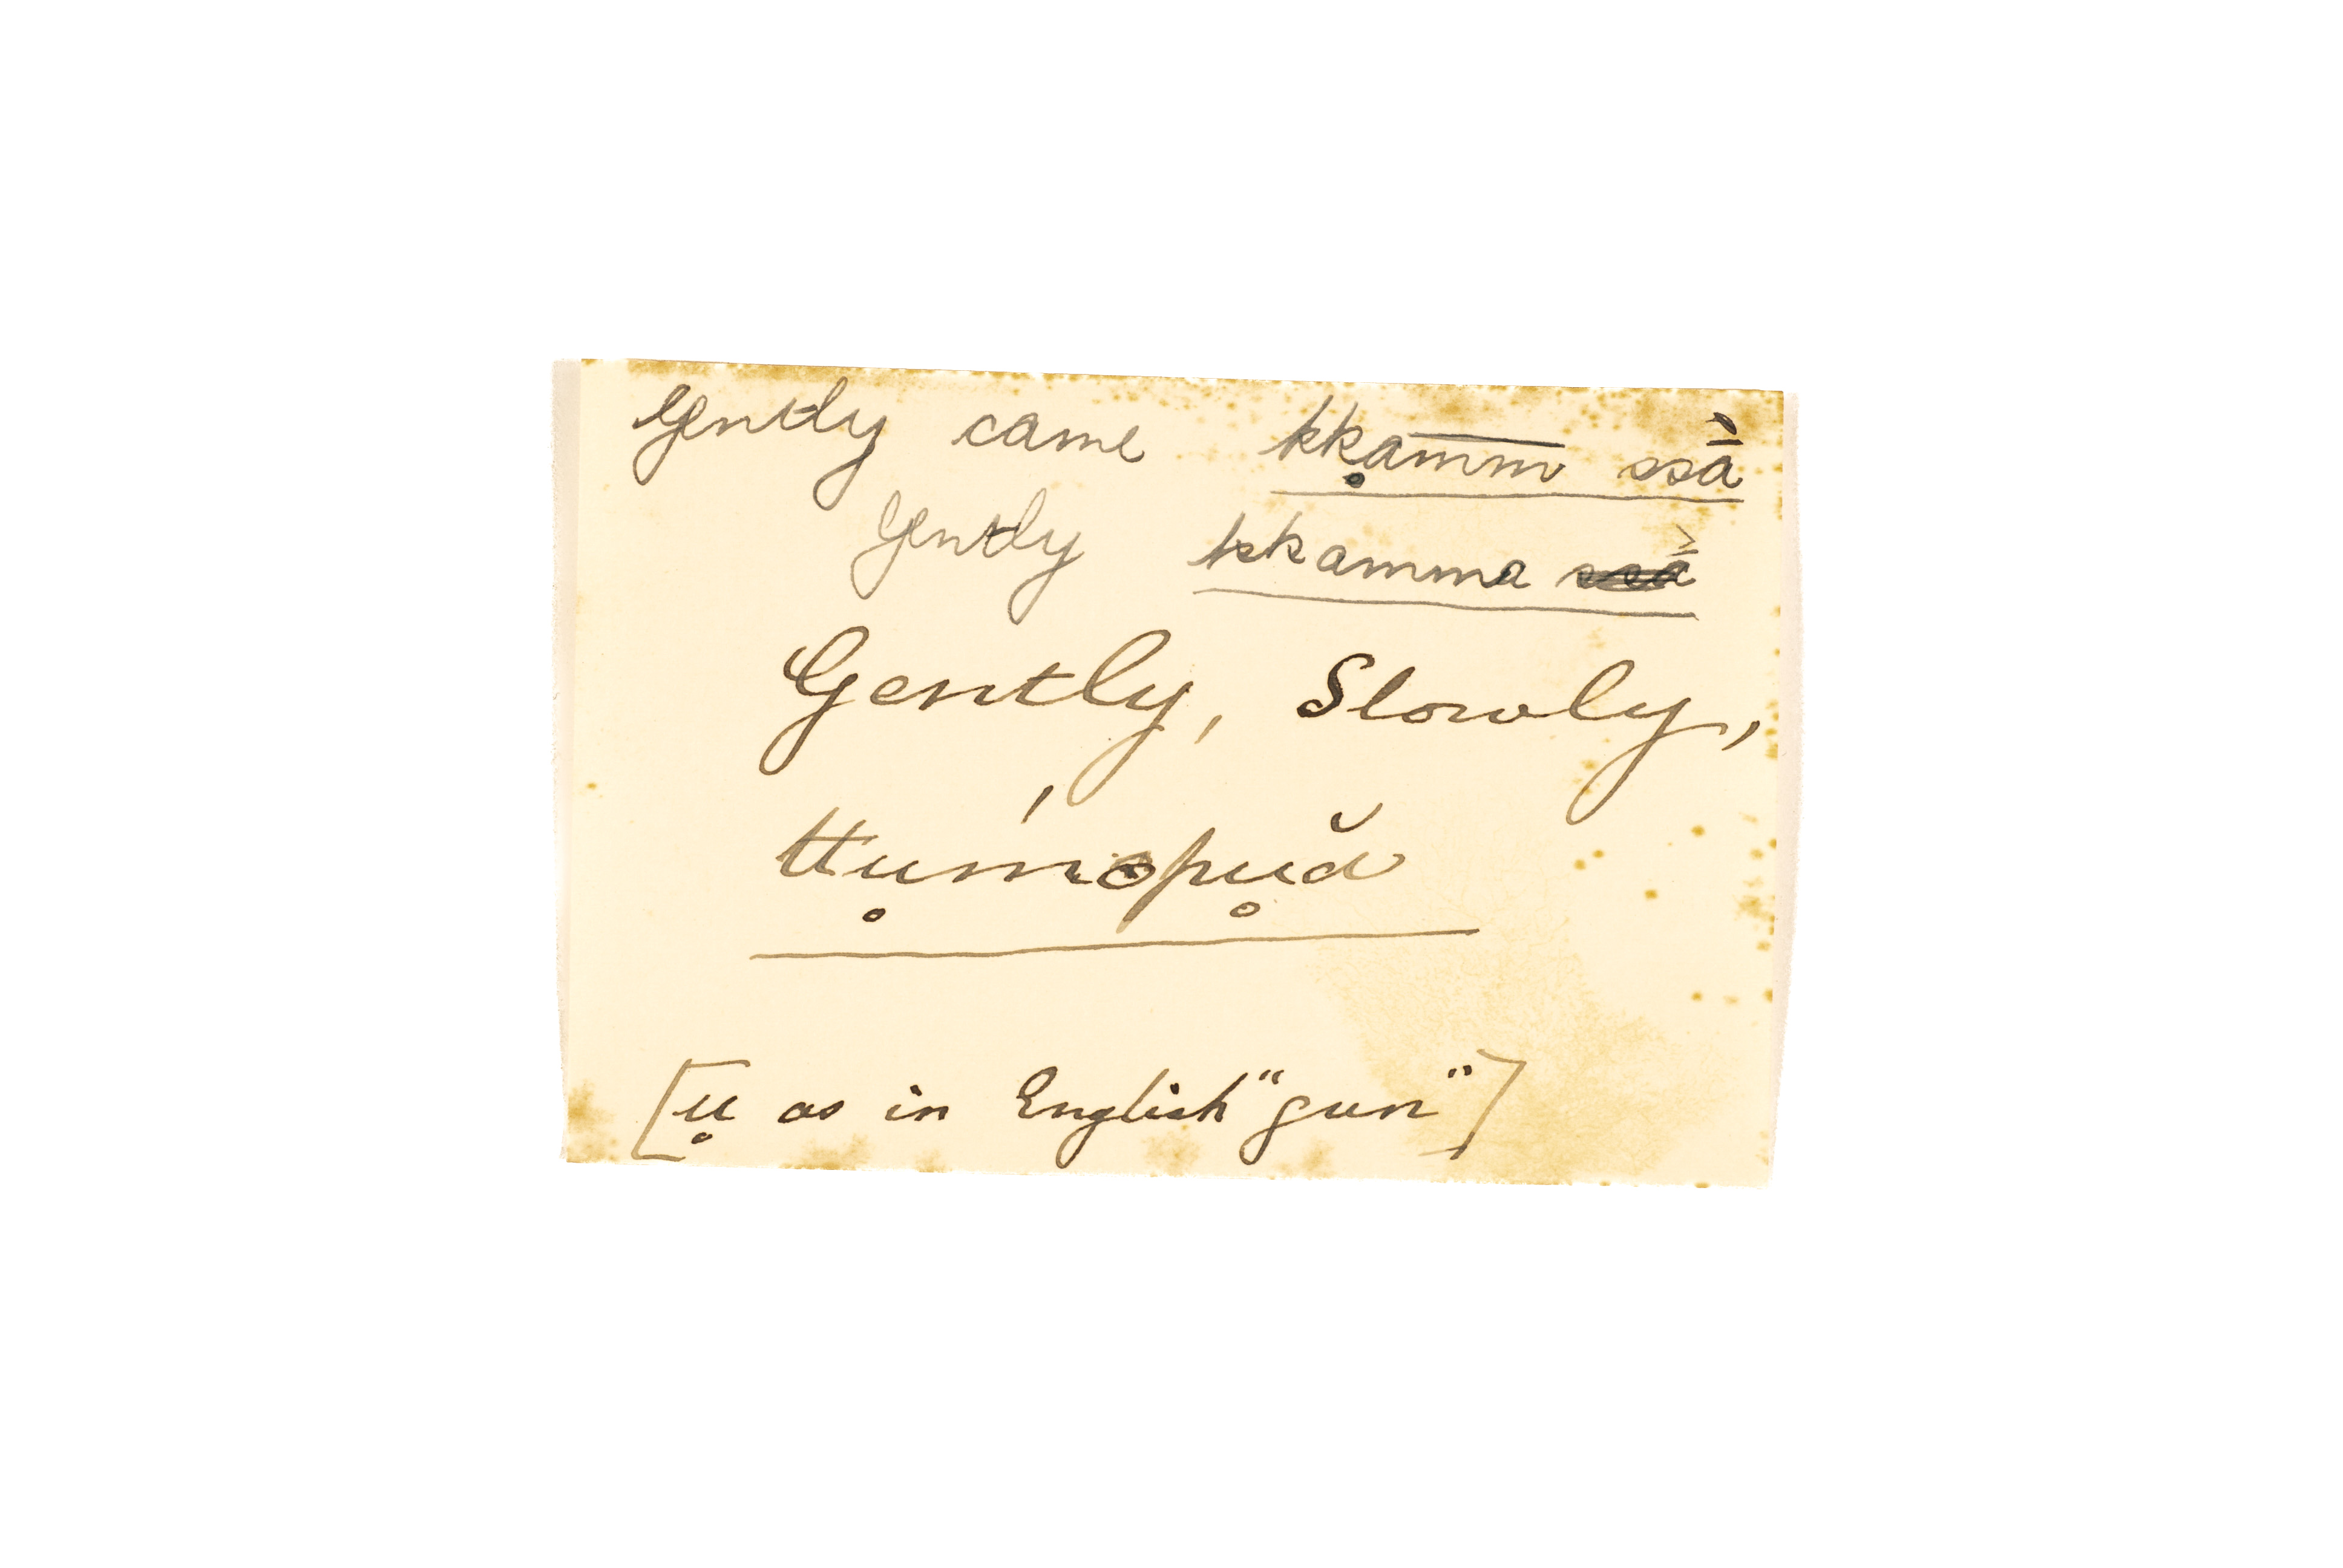 Gently came kkḁm̅m̅ ssā̀
Gently kkamma
Gently, Slowly,
ttu̥ḿopu̥ă
[u̥ as in English "gun"]